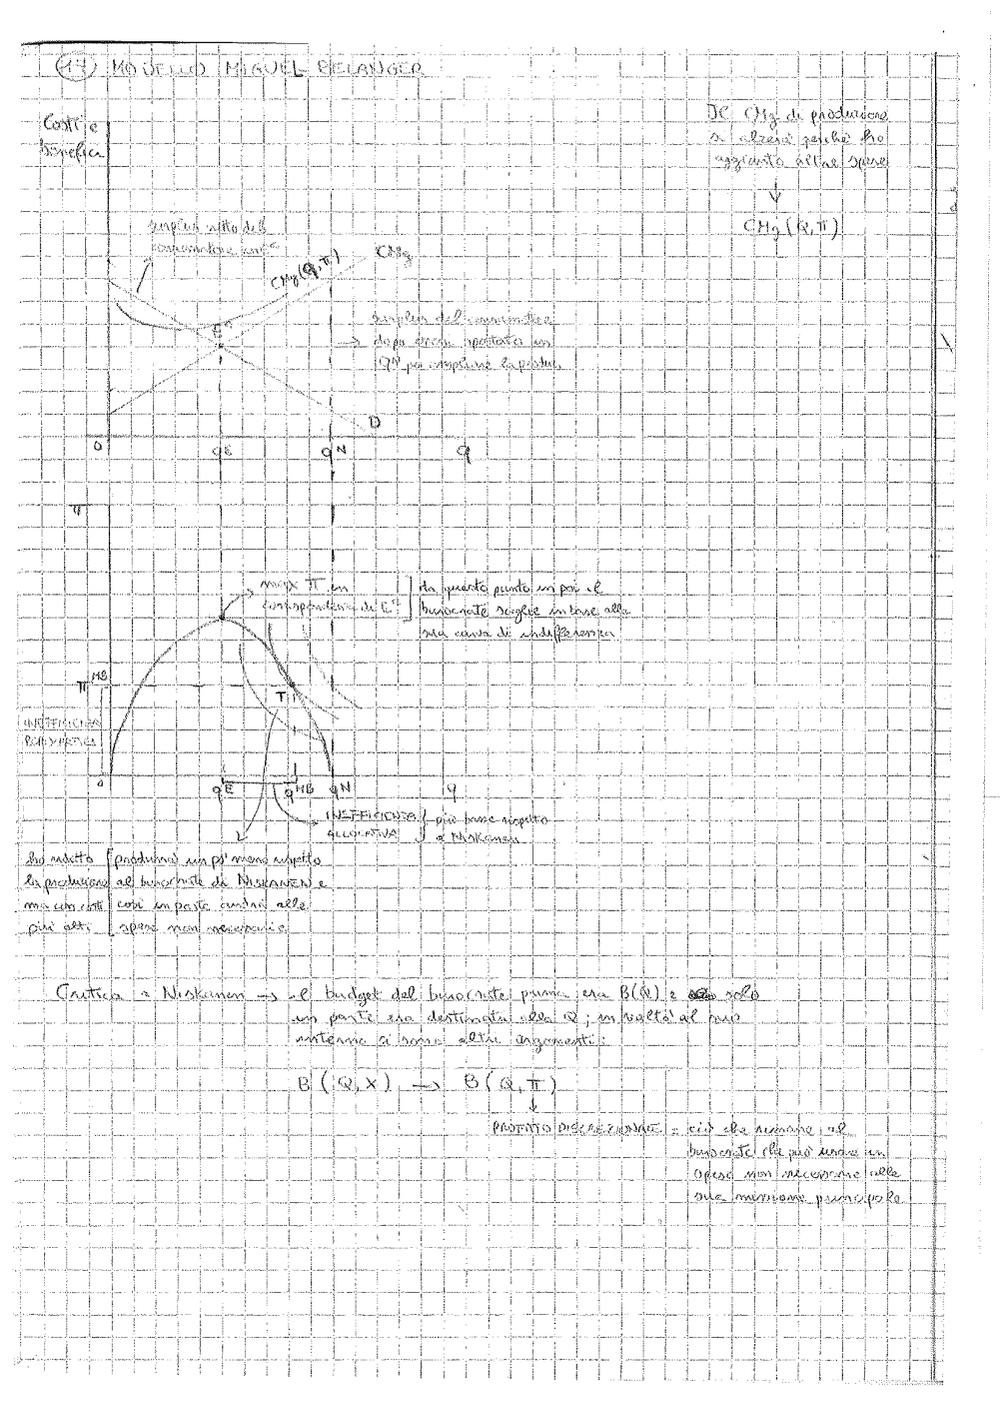 17 MODELLO MIGUEL BELANGER
Costi e
benefici
Il CMg di produzione
si alzerà perché ho
aggiunto altre spese
CMg (Q, π)
surplus netto del
consumatore in
CMg (Q, π)
CMg
E
surplus del consumatore
dopo essersi spostato in
per ampliare la produz.
D
0
qE
qN
q
π
max π in
corrispondenza di E
da questo punto in poi il
burocrate sceglie in base alla
sua curva di indifferenza
π MB
T
INEFFICIENZA
0
qE
qMB
qN
q
INEFFICIENZA
ALLOCATIVA
più bassa rispetto
a Niskanen
ho ridotto
la produzione
ma con costi
più alti
produrrà un po' meno rispetto
al burocrate di NISKANEN e
così in parte andrà alle
spese non necessarie
Critica a Niskanen → il budget del burocrate prima era B(Q) e solo
un parte era destinata alla Q; in realtà al suo
interno ci sono altri argomenti:
B (Q, X) → B (Q, π)
PROFITTO DISCREZIONALE = ciò che rimane al
burocrate che può usare in
spese non necessarie alla
sua missione principale